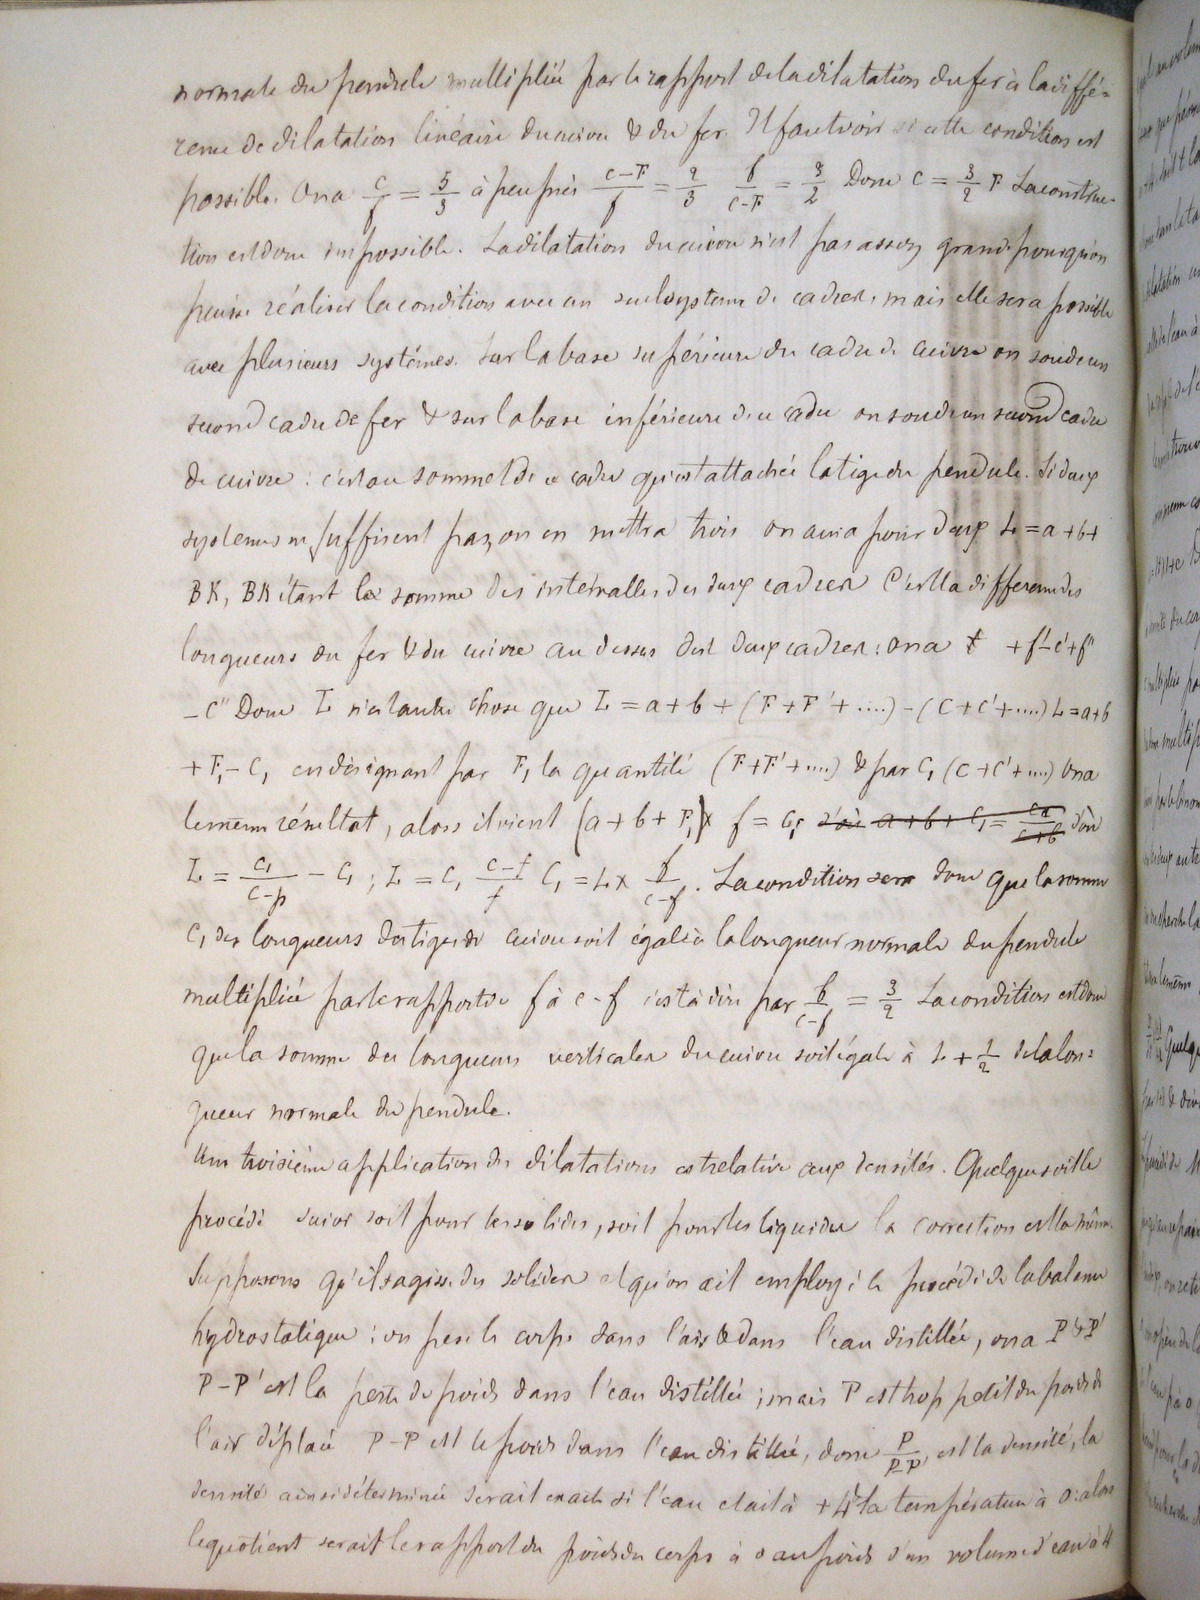 normale du pendule multipliée par le rapport de la dilatation du fer à la diffé=
rence de dilatation linéaire du cuivre & du fer. Il faut voir si cette condition est
possible. On a c/f = 5/3 à peu près c-F/f = 2/3 f/c-F = 3/2 Donc C = 3/2 F La construc-
tion est donc impossible. La dilatation du cuivre n'est pas assez grande pour qu'on
puisse réaliser la condition avec un seul systeme de cadres, mais elle sera possible
avec plusieurs systémes. Sur la base supérieure du cadre de cuivre on soude un
second cadre de fer & sur la base inférieure de ce cadre on soude un second cadre
de cuivre : c'est au sommet de ce cadre qu'est attachée la tige du pendule. Si deux
systemes ne suffisent pas, on en mettra trois on aura pour deux L = a + b +
BK, BK étant la somme des intervalles des deux cadres C'est la difference des
longueurs du fer & du cuivre au dessus des deux cadres : on a + f'-c'+f''
- c'' Donc L n'est autre chose que L = a + b + (F + F' + ....) - (C + C' + ....) L = a + b
+ F, - C, en désignant par F, la quantité (F + F' + ....) & par C, (C + C' + ....) On a
le même résultat, alors il vient (a + b + F,) x f = C, d'où a + b + C, = d'où
L = C,/c-f - C, ; L = C, c-f/f C, = L x f/c-f. La condition sera donc que la somme
C, des longueurs des tiges de cuivre soit égale à la longueur normale du pendule
multipliée par le rapport de f à c-f c'est à dire par f/c-f = 3/2 La condition est donc
que la somme des longueurs verticales du cuivre soit égale à L + 1/2 de la lon=
gueur normale du pendule.
Une troisième application des dilatations est relative aux densités. Quelque soit le
procédé suivi soit pour les solides, soit pour les liquides la correction est la même.
Supposons qu'il s'agisse des solides et qu'on ait employé le procédé de la balance
hydrostatique : on pese le corps dans l'air & dans l'eau distillée, on a P & P'
P-P' est la perte de poids dans l'eau distillée ; mais P est trop petit du poids de
l'air déplacé P-P est le poids dans l'eau distillée, donc P/P-P, est la densité, la
densité ainsi déterminée serait exacte si l'eau etait à +4° la température à 0 : alors
le quotient serait le rapport du poids du corps à 0 au poids d'un volume d'eau à 4